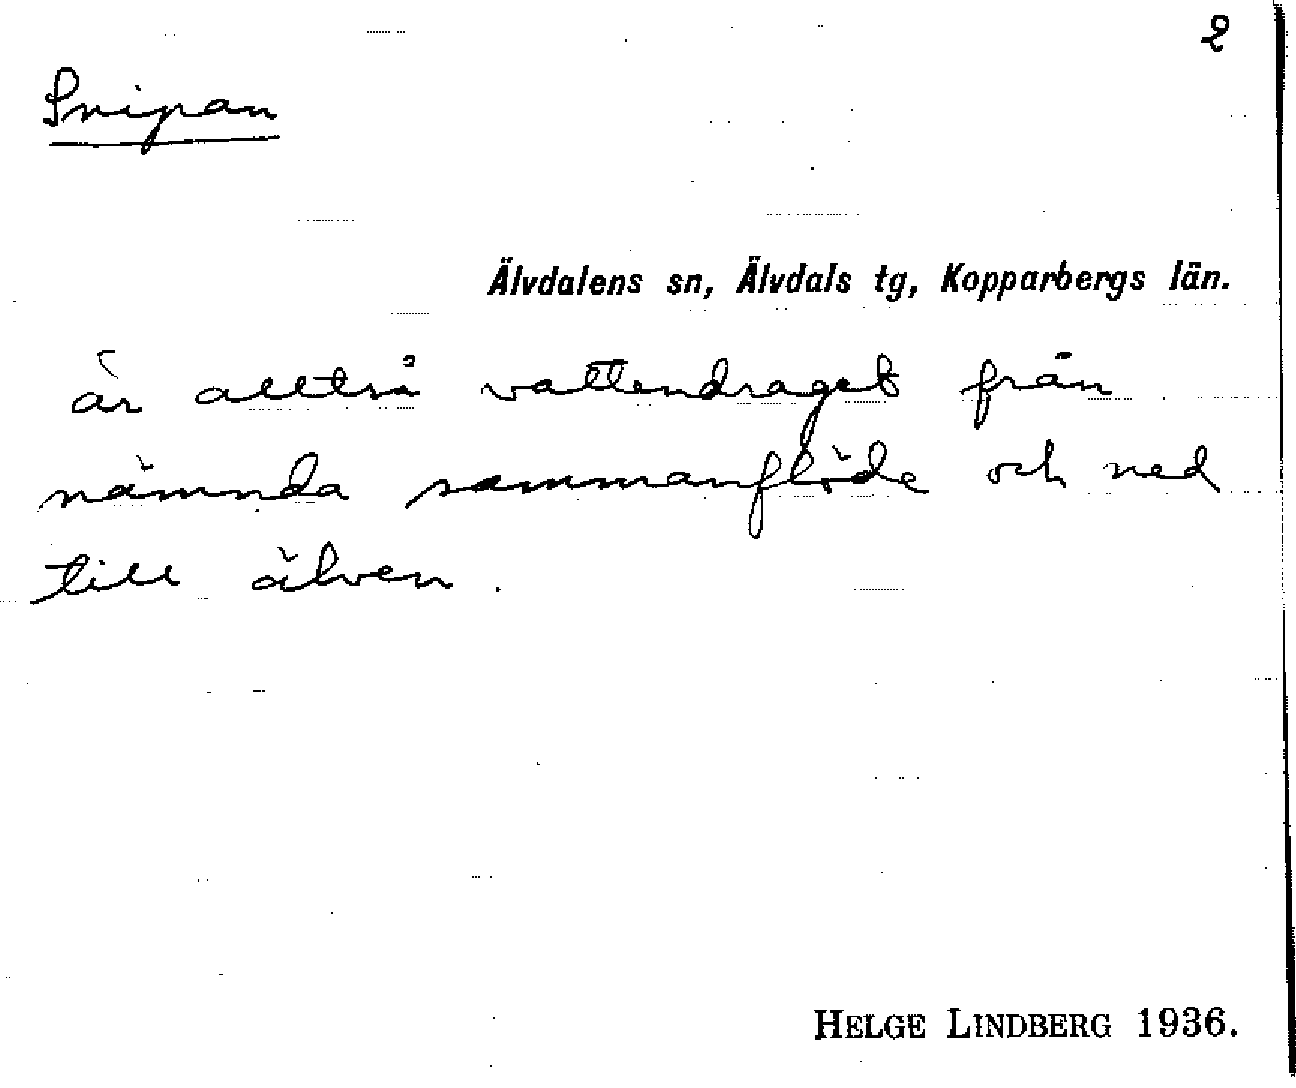 2
Snipan
Älvdalens sn, Älvdals tg, Kopparbergs län.
är alltså vattendraget från
nämnda sammanflöde och ned
till älven.
HELGE LINDBERG 1936.